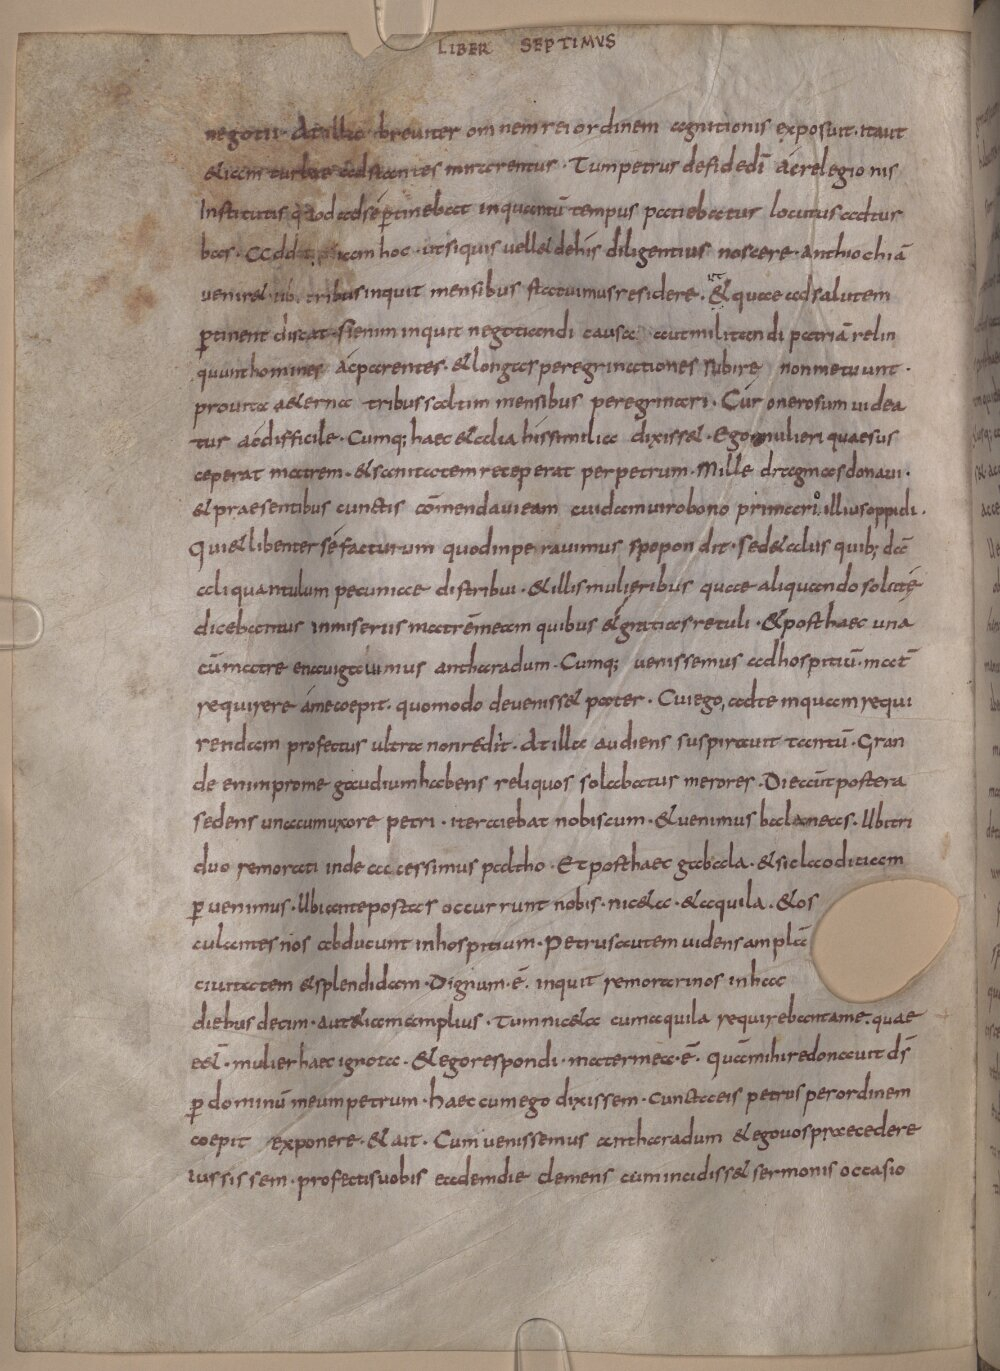 LIBER SEPTIMVS
negotii · At illa breviter omnem rei ordinem cognitionis exposuit · itaut
&iam turbae adstantes mirarentur · Tum petrus de fide dei ac relegionis
Institutis quod ad se p̱tinebat inquantū tempus patiebatur locutus ad tur
bas · Addit &iam hoc · ut siquis vell& de his diligentius noscere · anthiochiā
venir& · ubi tribus inquit mensibus statuimus residere · & quae ad salutem
p̱tinent discat · si enim inquit negotiandi causa aut militandi patriā relin
quunt homines ac parentes · & longas peregrinationes subire non metuunt ·
pro vita aeterna tribus saltim mensibus peregrinari · Cur onerosum videa
tur ac difficile · Cumq; haec & alia his similia dixiss& · Ego mulieri quae sus
ceperat matrem · & sanitatem receperat per petrum · Mille dragmas donavi ·
& praesentibus cunctis cōmendavi eam cuidam viro bono primario illius oppidi ·
Qui & libenter se facturum quod inperavimus spopondit · sed & aliis quib; dā
aliquantulum pecuniae distribui · & illis mulieribus quae aliquando solatę
dicebantur in miseriis matrē meam quibus & gratias retuli · & post haec una
cū matre enavigavimus antharadum · Cumq; venissemus ad hospitiū · mat̄
requirere a me coepit · quomodo deveniss& pater · Cui ego, ad te inquam requi
rendam profectus ultra non redit · At illa audiens suspiravit tantū · Gran
de enim pro me gaudium habens reliquos solabatur merores · Die aūt postera
sedens una cum uxore petri · iter aiebat nobiscum · & venimus balaneas · Ubi tri
duo remorati inde accessimus patho · Et post haec gabala · & sic laoditiam
p̱venimus · Ubi ante portas occurrunt nobis · nic&a · & aquila · & os
culantes nos abducunt in hospitium · Petrus autem videns amplā
civitatem & splendidam · Dignum · ē · inquit remorari nos in hac
diebus decim · aut &iam amplius · Tum nic&a cum aquila requirebant a me · quae
e&̄ · mulier haec ignota · & ego respondi · mater mea · ē · Quam mihi redonavit d̄s
p̱ dominū meum petrum · haec cum ego dixissem · cuncta eis petrus per ordinem
coepit exponere · & ait · Cum venissemus antharadum & ego vos praecedere
iussissem · profectis vobis eadem die clemens cum incidiss& sermonis occasio